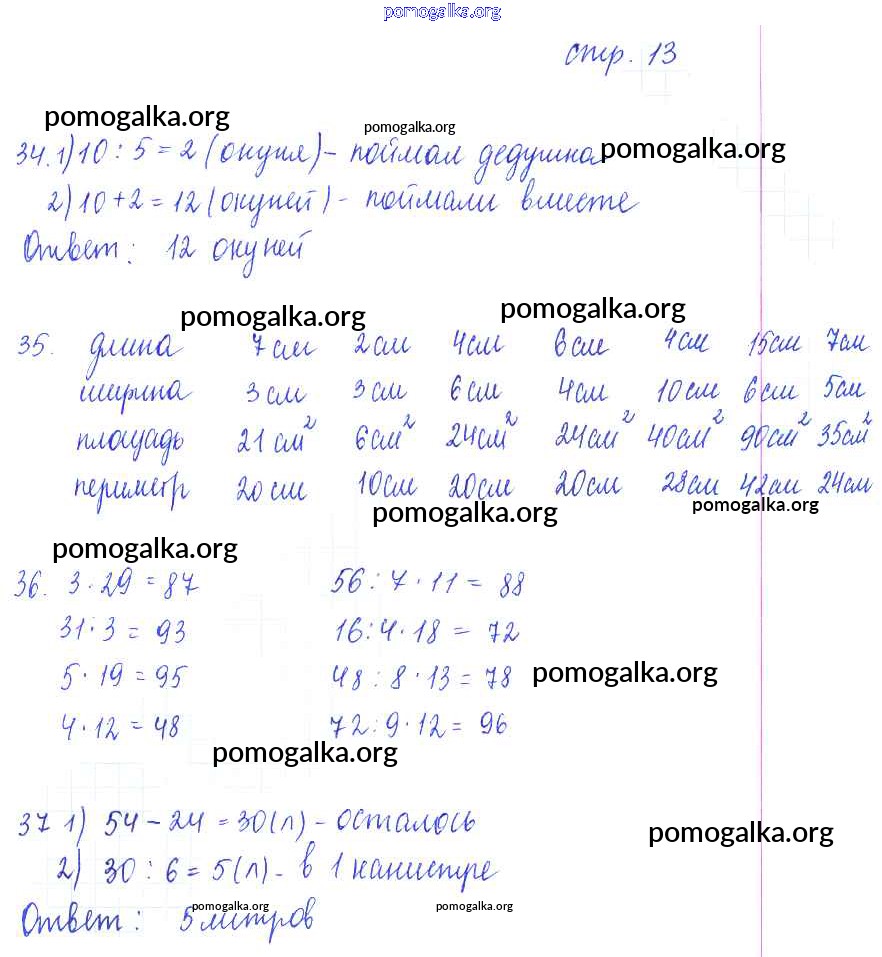 pomogalka.org
стр. 13
pomogalka.org
pomogalka.org
34. 1) 10 : 5 = 2 (окуня) - поймал дедушка pomogalka.org
2) 10 + 2 = 12 (окуней) - поймали вместе
Ответ: 12 окуней
pomogalka.org pomogalka.org
35. длина 7см 2см 4см 6см 4см 15см 7см
ширина 3см 3см 6см 4см 10см 6см 5см
площадь 21см² 6см² 24см² 24см² 40см² 90см² 35см²
периметр 20см 10см 20см 20см 28см 42см 24см
pomogalka.org pomogalka.org
pomogalka.org
36. 3 · 29 = 87 56 : 7 · 11 = 88
31 · 3 = 93 16 : 4 · 18 = 72
5 · 19 = 95 48 : 8 · 13 = 78 pomogalka.org
4 · 12 = 48 72 : 9 · 12 = 96
pomogalka.org
37 1) 54 - 24 = 30(л) - осталось pomogalka.org
2) 30 : 6 = 5(л) - в 1 канистре
pomogalka.org pomogalka.org
Ответ: 5 литров